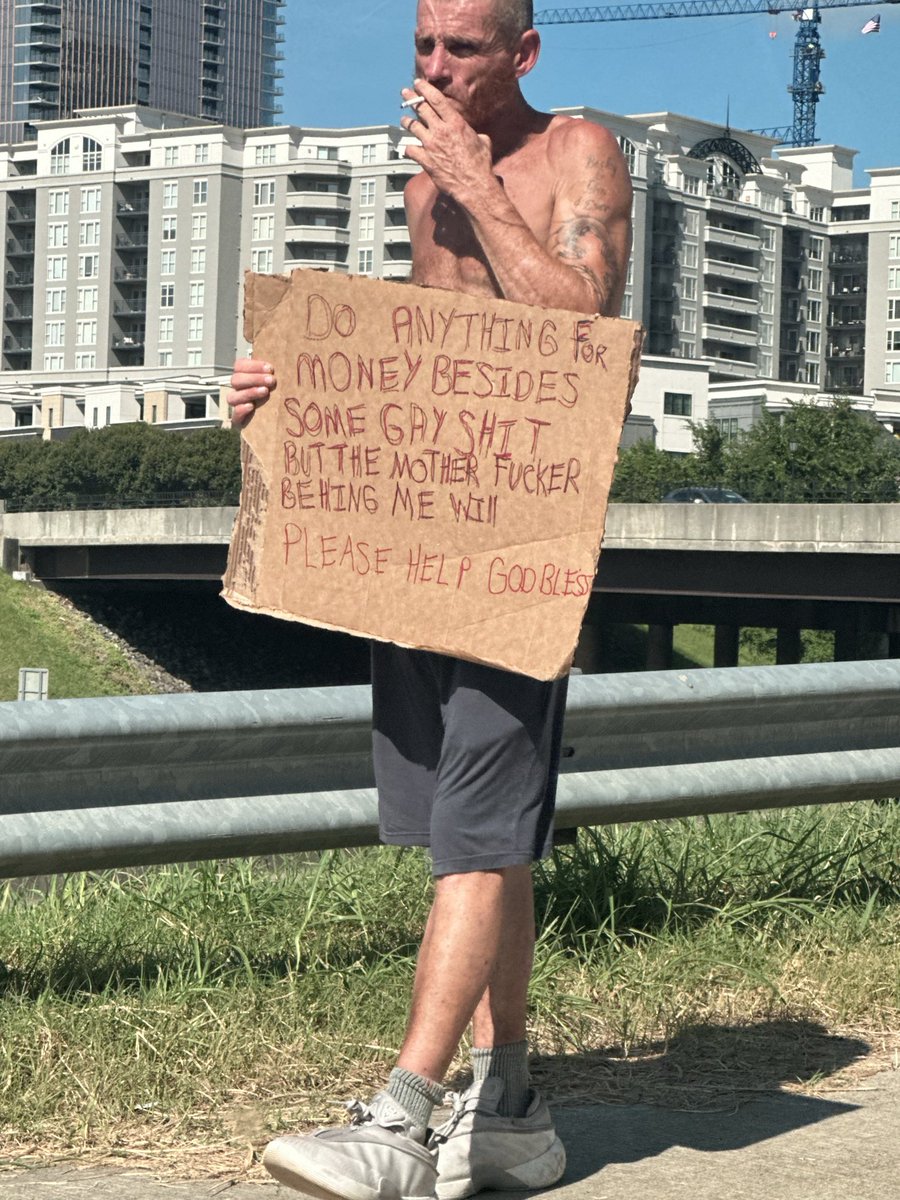 DO ANYTHING FOR
MONEY BESIDES
SOME GAY SHIT
BUT THE MOTHER FUCKER
BEHING ME WIll
PLEASE HELP GOD BLESS